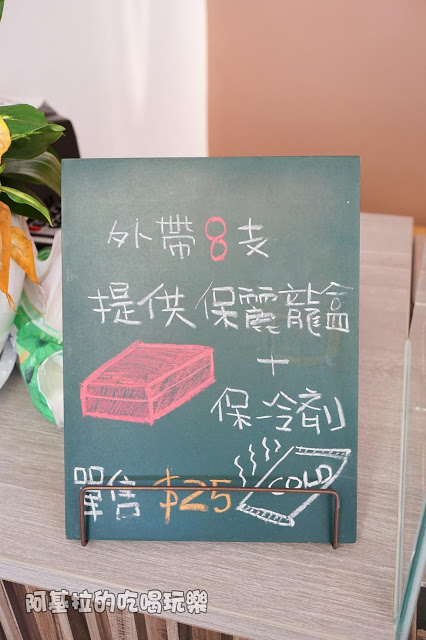 外帶8支
提供保震龍盒
+
保冷劑
單售 $25
COLD
阿基拉的吃喝玩樂